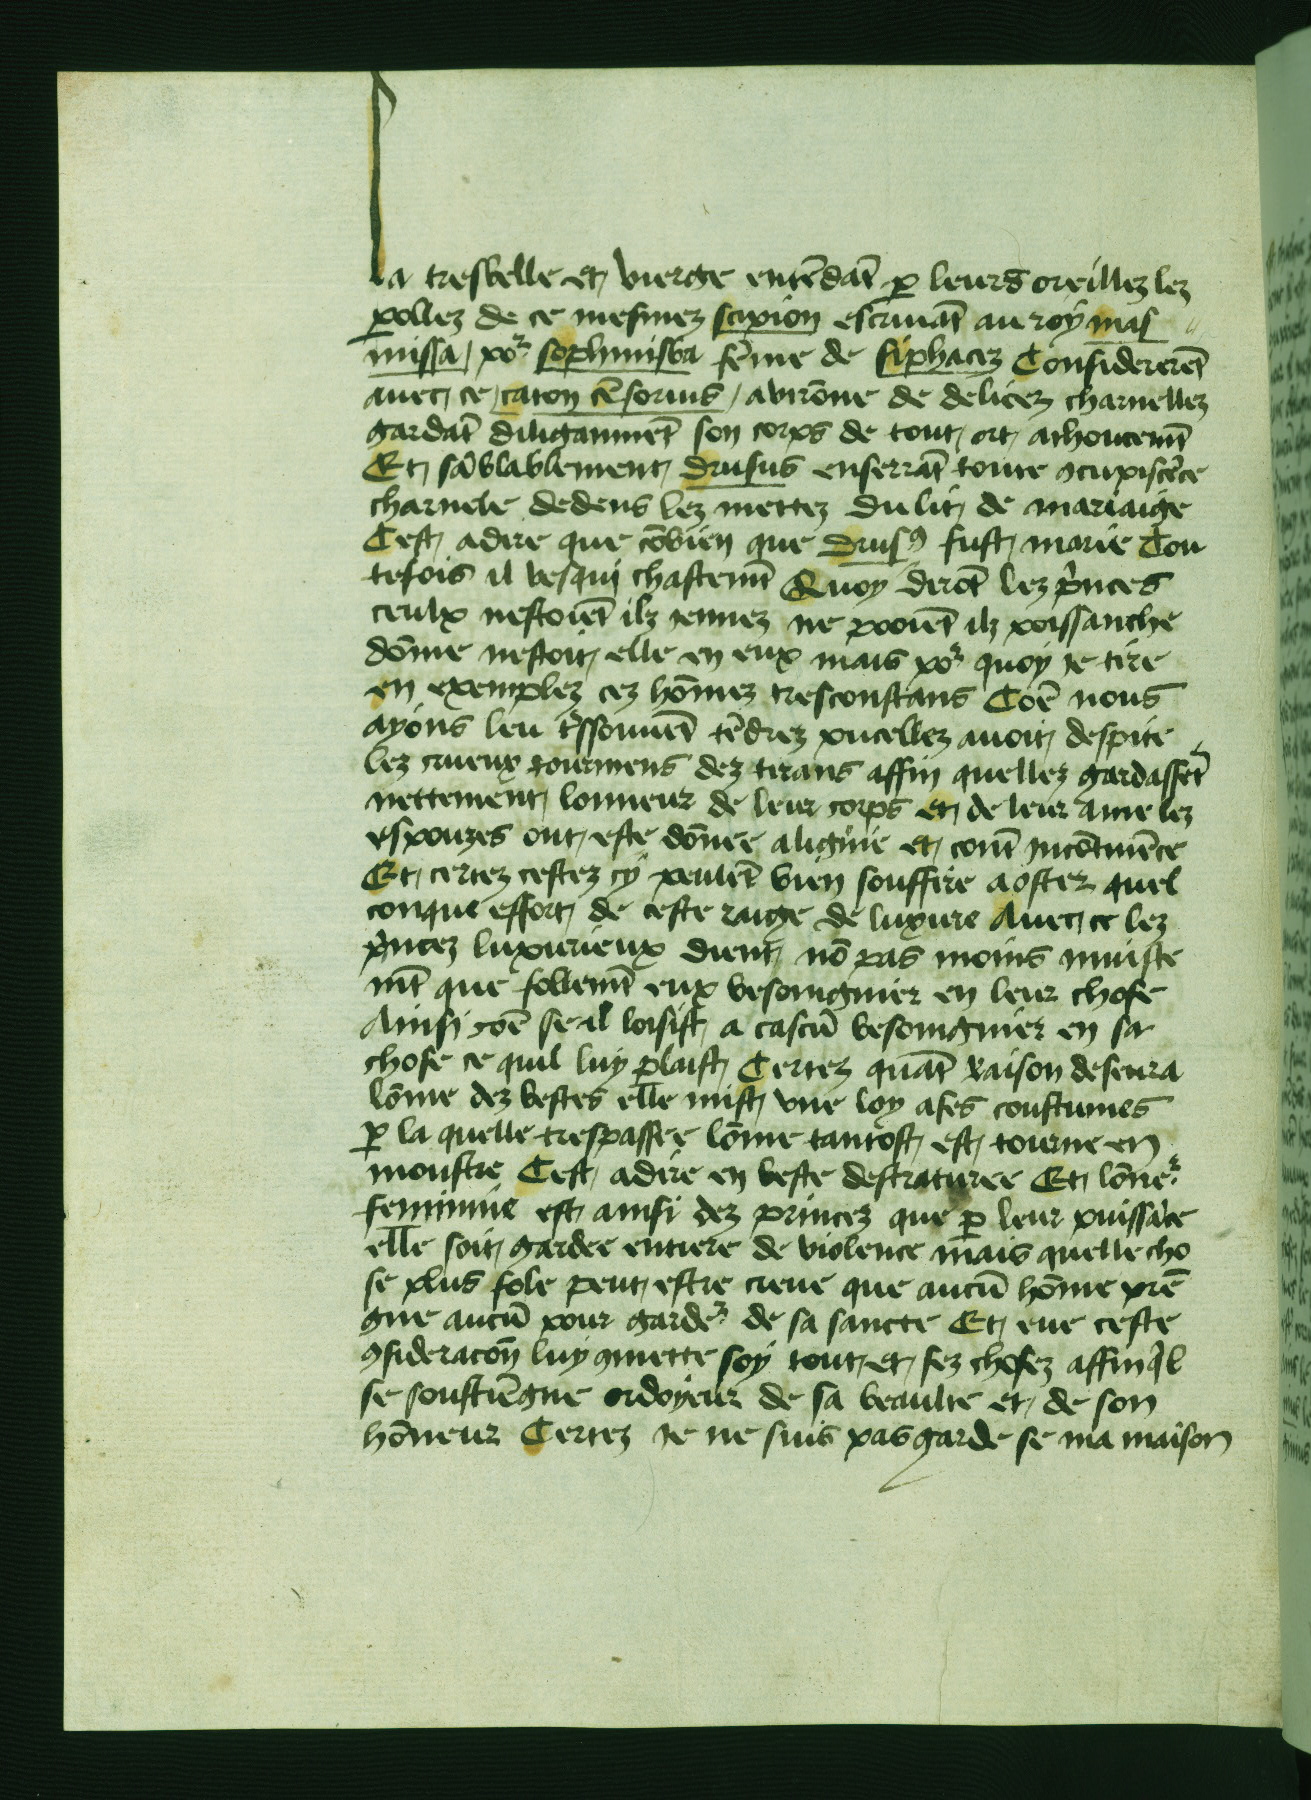 La tresbelle et vierge entēdāt p̱ leurs oreillez lez
p̱ollez de ce mesmez scipion escriuāt au roy mas
missa / poᷣ sophonisba fēme de siphacez Considererēt
auec ce caton cēsorius / auirōne de delicez charnellez
gardāt diligammēt son corps de tout ort athoucemt̄
Et sāblablement drusus enserrāt toute ꝯcupiscēce
charnele dedens lez mettez du lit de mariaige
Cest adire que cōbien que drusꝰ fust marie Tou
tefois il vesqui chastemt̄ Quoy dirōt lez p̓nces
ceulx nestoiēt ilz iennez ne pooiēt ilz poissanche
dōme nestoit elle en eux mais poᷣ quoy ie tire
en exemplez cez hōmez tresconstans Coē nous
ayons leu tēdrez pucellez auoit despite
lez crueux tourmens dez tirans affin quellez gardassēt
nettement lonneur de leur corps et de leur ame lez
espouzes ont este dōnee a ligniie et cont̄ incōtinēce
Et certez cestez cy peulēt bien souffire a oster quel
conque effort de ceste raige de luxure Auec ce lez
p̓ncez luxurieux dient nō pas moins iniuste
mt̄ que follemt̄ eux besoingnier en leur chose
Ainsi coē se il loisist a cascū besoingnier en sa
chose ce quil luy plaist Certez quāt raison deseura
lōme dez bestes elle mist vne loy a ses coustumes
p̱ la quelle trespassee lōme tantost est tourne en
monstre Cest adire en beste desnaturee Et lōneᷣ
feminine est ainsi dez princez que p̱ leur puissāce
elle soit gardee entiere de violence mais quelle cho
se plus fole peut estre creue que aucū hōme prē
gne aucū pour gardeᷣ de sa sancte Et eue ceste
ꝯsideracōn luy ꝯmette soy tout et sez chosez affin q̄l
se soustiēgne ordoyeur de sa beaulte et de son
hōneur Certez ie ne suis pas garde se ma maison